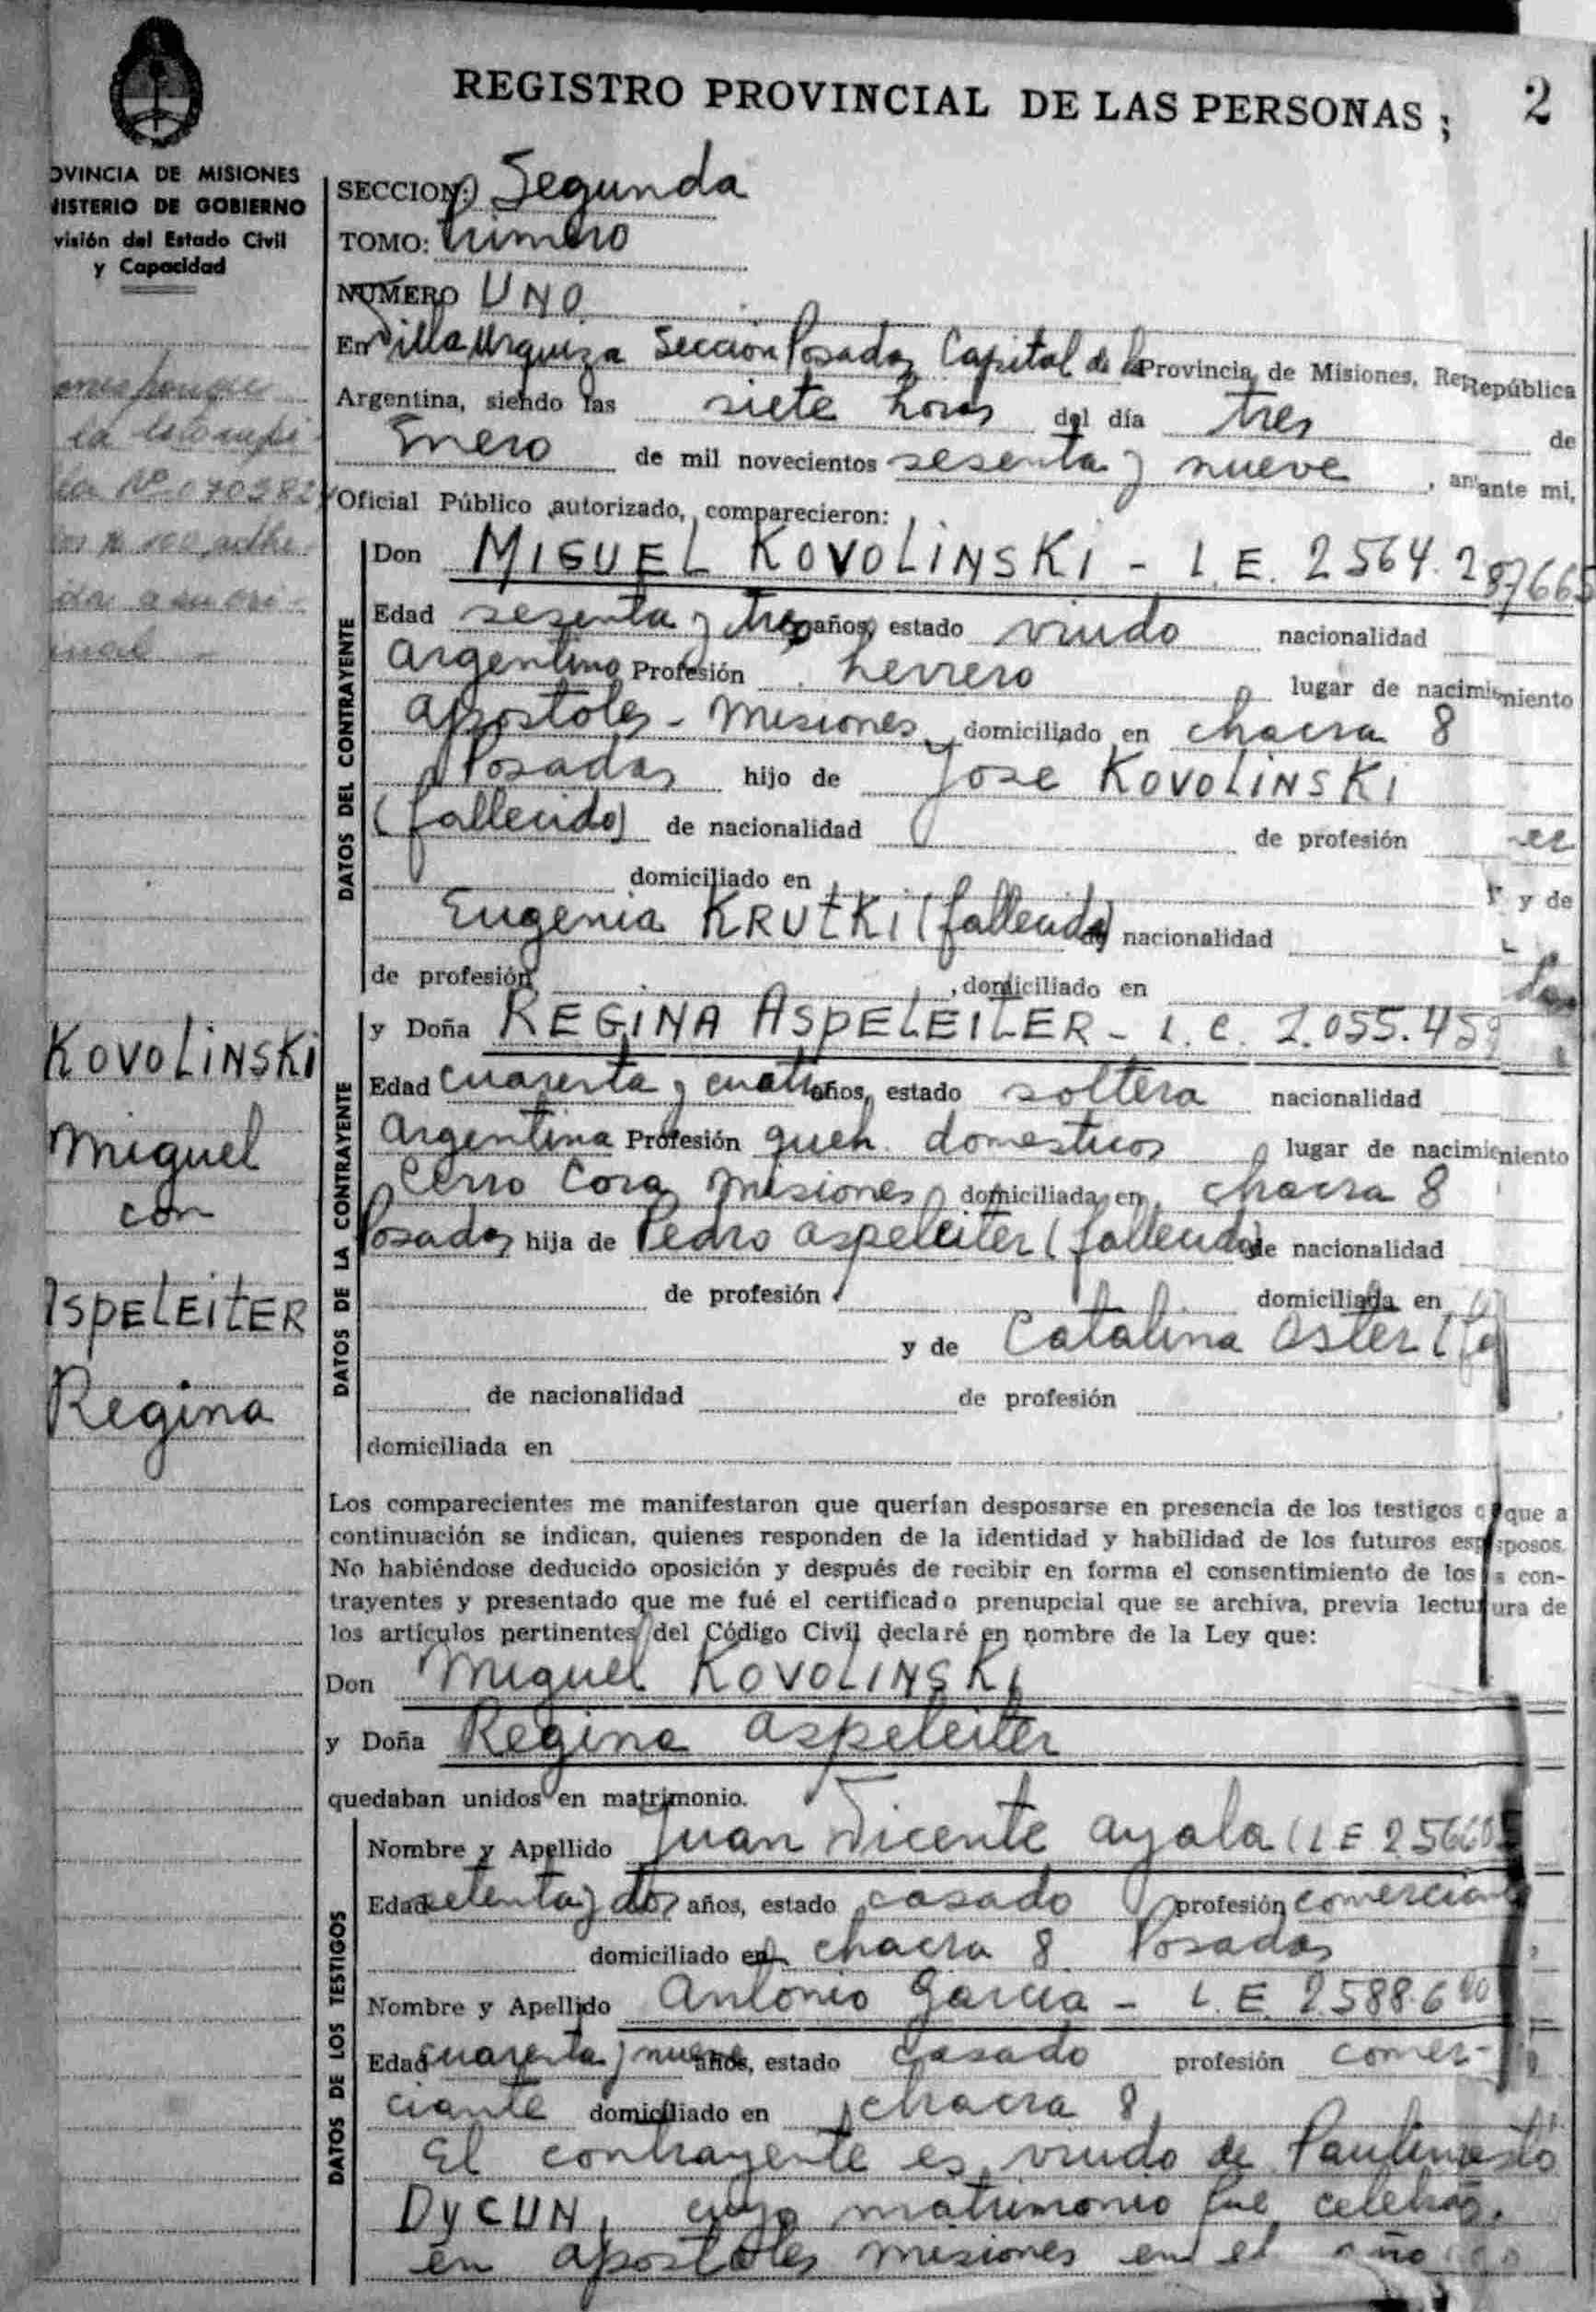 REGISTRO PROVINCIAL DE LAS PERSONAS ; 2
OVINCIA DE MISIONES
NISTERIO DE GOBIERNO
visión del Estado Civil
y Capacidad
SECCION: Segunda
TOMO: Primero
NUMERO UNO
En Villa Urquiza Sección Posadas Capital de la Provincia de Misiones, República
Argentina, siendo las siete horas del día tres de
Enero de mil novecientos sesenta y nueve, ante mi,
Oficial Público autorizado, comparecieron:
la estampi
lla Nº 070382
los $ 100 adhe
rida a su ori
ginal -
DATOS DEL CONTRAYENTE
Don MIGUEL KOVOLINSKI - L.E. 2564.2
Edad sesenta y tres años, estado viudo nacionalidad
Argentino Profesión herrero lugar de nacimiento
Apostoles - Misiones domiciliado en chacra 8
Posadas hijo de Jose KOVOLINSKI
(fallecido) de nacionalidad de profesión
domiciliado en y de
Eugenia KRUTKI (fallecida) nacionalidad
de profesión , domiciliado en
y Doña REGINA ASPELEITER - L.C. 2.055.459
KOVOLINSKI
Miguel
con
ASPELEITER
Regina
DATOS DE LA CONTRAYENTE
Edad cuarenta y cuatro años, estado soltera nacionalidad
Argentina Profesión queh. domesticos lugar de nacimiento
Cerro Cora Misiones domiciliada en chacra 8
Posadas hija de Pedro Aspeleiter (fallecido) de nacionalidad
de profesión domiciliada en
y de Catalina Oster (fa
de nacionalidad de profesión
domiciliada en
Los comparecientes me manifestaron que querían desposarse en presencia de los testigos que a
continuación se indican, quienes responden de la identidad y habilidad de los futuros esposos.
No habiéndose deducido oposición y después de recibir en forma el consentimiento de los con-
trayentes y presentado que me fué el certificado prenupcial que se archiva, previa lectura de
los artículos pertinentes del Código Civil declaré en nombre de la Ley que:
Don Miguel KOVOLINSKI
y Doña Regina Aspeleiter
quedaban unidos en matrimonio.
DATOS DE LOS TESTIGOS
Nombre y Apellido Juan Vicente Ayala (LE
Edad setenta y dos años, estado casado profesión comerciante
domiciliado en chacra 8 Posadas
Nombre y Apellido Antonio Garcia - L.E. 2.588.6
Edad cuarenta y nueve años, estado casado profesión comer-
ciante domiciliado en chacra 8
El contrayente es viudo de Paulina
DYCUN, cuyo matrimonio fue celebrado
en Apostoles Misiones en el año